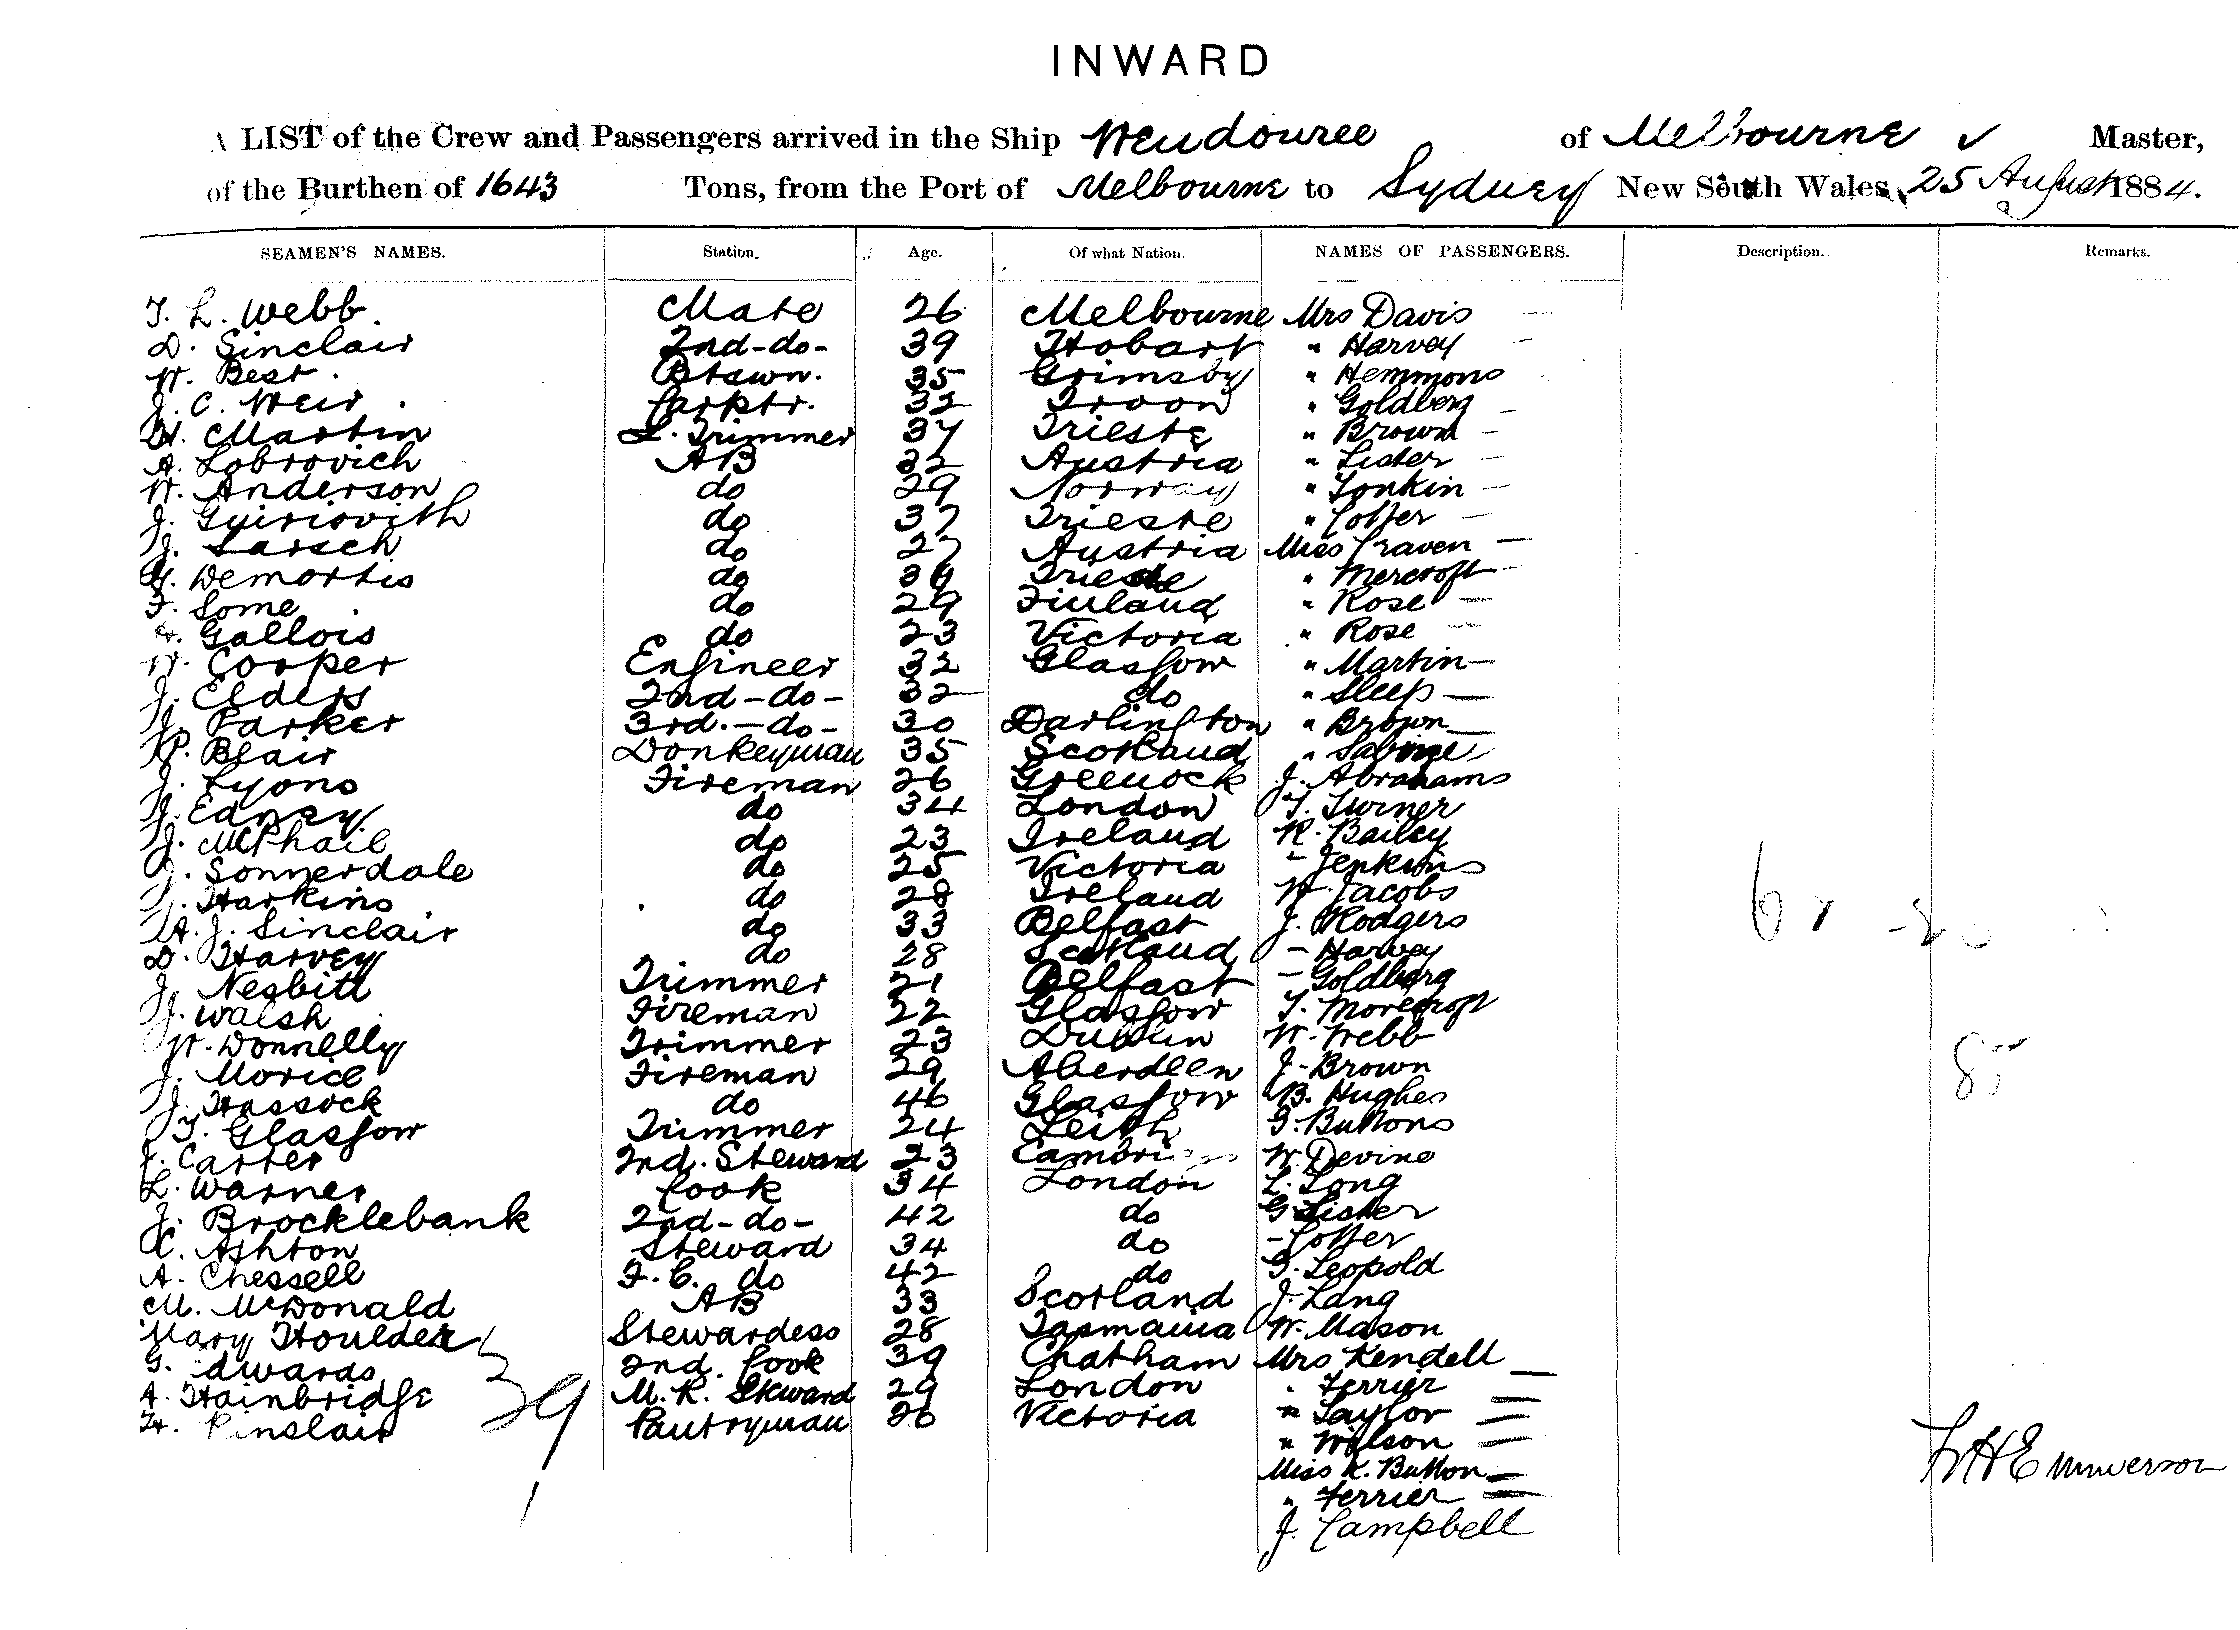 INWARD
A LIST of the Crew and Passengers arrived in the Ship Wendouree of Melbourne ✓ Master,
of the Burthen of 1643 Tons, from the Port of Melbourne to Sydney New South Wales, 25 August 1884.
SEAMEN'S NAMES. Station. Age. Of what Nation. NAMES OF PASSENGERS. Description. Remarks.
T. L. Webb Mate 26 Melbourne Mrs Davis —
D. Sinclair 2nd-do- 39 Hobart " Harvey —
W. Best Btswn. 35 Grimsby " Hemmons
J. C. Weir Carptr. 32 Troon " Goldberg —
H. Martin L. Trimmer 37 Trieste " Brown —
A. Lobrovich AB 32 Austria " Lister —
W. Anderson do 29 Norway " Tonkin —
J. do 37 Trieste " Cotter —
J. Larsch do 27 Austria Miss Craven —
G. Demortis do 36 Trieste " Mercroft —
F. Some do 29 Finland " Rose —
Gallois do 23 Victoria " Rose —
W. Cooper Engineer 32 Glasgow " Martin —
J. Elders 2nd-do- 32 do " Sleep —
J. Parker 3rd.-do- 30 Darlington " Brown —
R. Blair Donkeyman 35 Scotland " Sabine
J. Lyons Fireman 26 Greenock J. Abrahams
J. Edney do 34 London T. Turner
J. McPhail do 23 Ireland R. Bailey
J. Sonnerdale do 25 Victoria - Jenkins
J. Harkins do 28 Ireland W. Jacobs
W. J. Sinclair do 33 Belfast J. Rodgers
D. Harvey do 28 Scotland - Harvey
J. Nesbitt Trimmer 21 Belfast - Goldberg
J. Walsh Fireman 22 Glasgow T. Morecroft
W. Donnelly Trimmer 23 Dublin W. Webb
J. Morice Fireman 29 Aberdeen J. Brown
J. Hassock do 46 Glasgow B. Hughes
T. Glasgow Trimmer 24 Leith G. Buttons
J. Carter 2nd. Steward 23 W. Devine
L. Warner Cook 34 London L. Long
J. Brocklebank 2nd-do- 42 do G. Lister
C. Ashton Steward 34 do - Cotter
A. Chessell F. C. do 42 do G. Leopold
M. McDonald AB 33 Scotland J. Lang
Mary Houlder Stewardess 28 Tasmania W. Mason
G. Edwards 2nd. Cook 39 Chatham Mrs Kendell —
A. Hainbridge M. R. Steward 29 London " Ferrier —
H. Pantryman 26 Victoria " Taylor —
39
" Wilson —
Miss K. Button —
" Ferrier —
J. Campbell
85